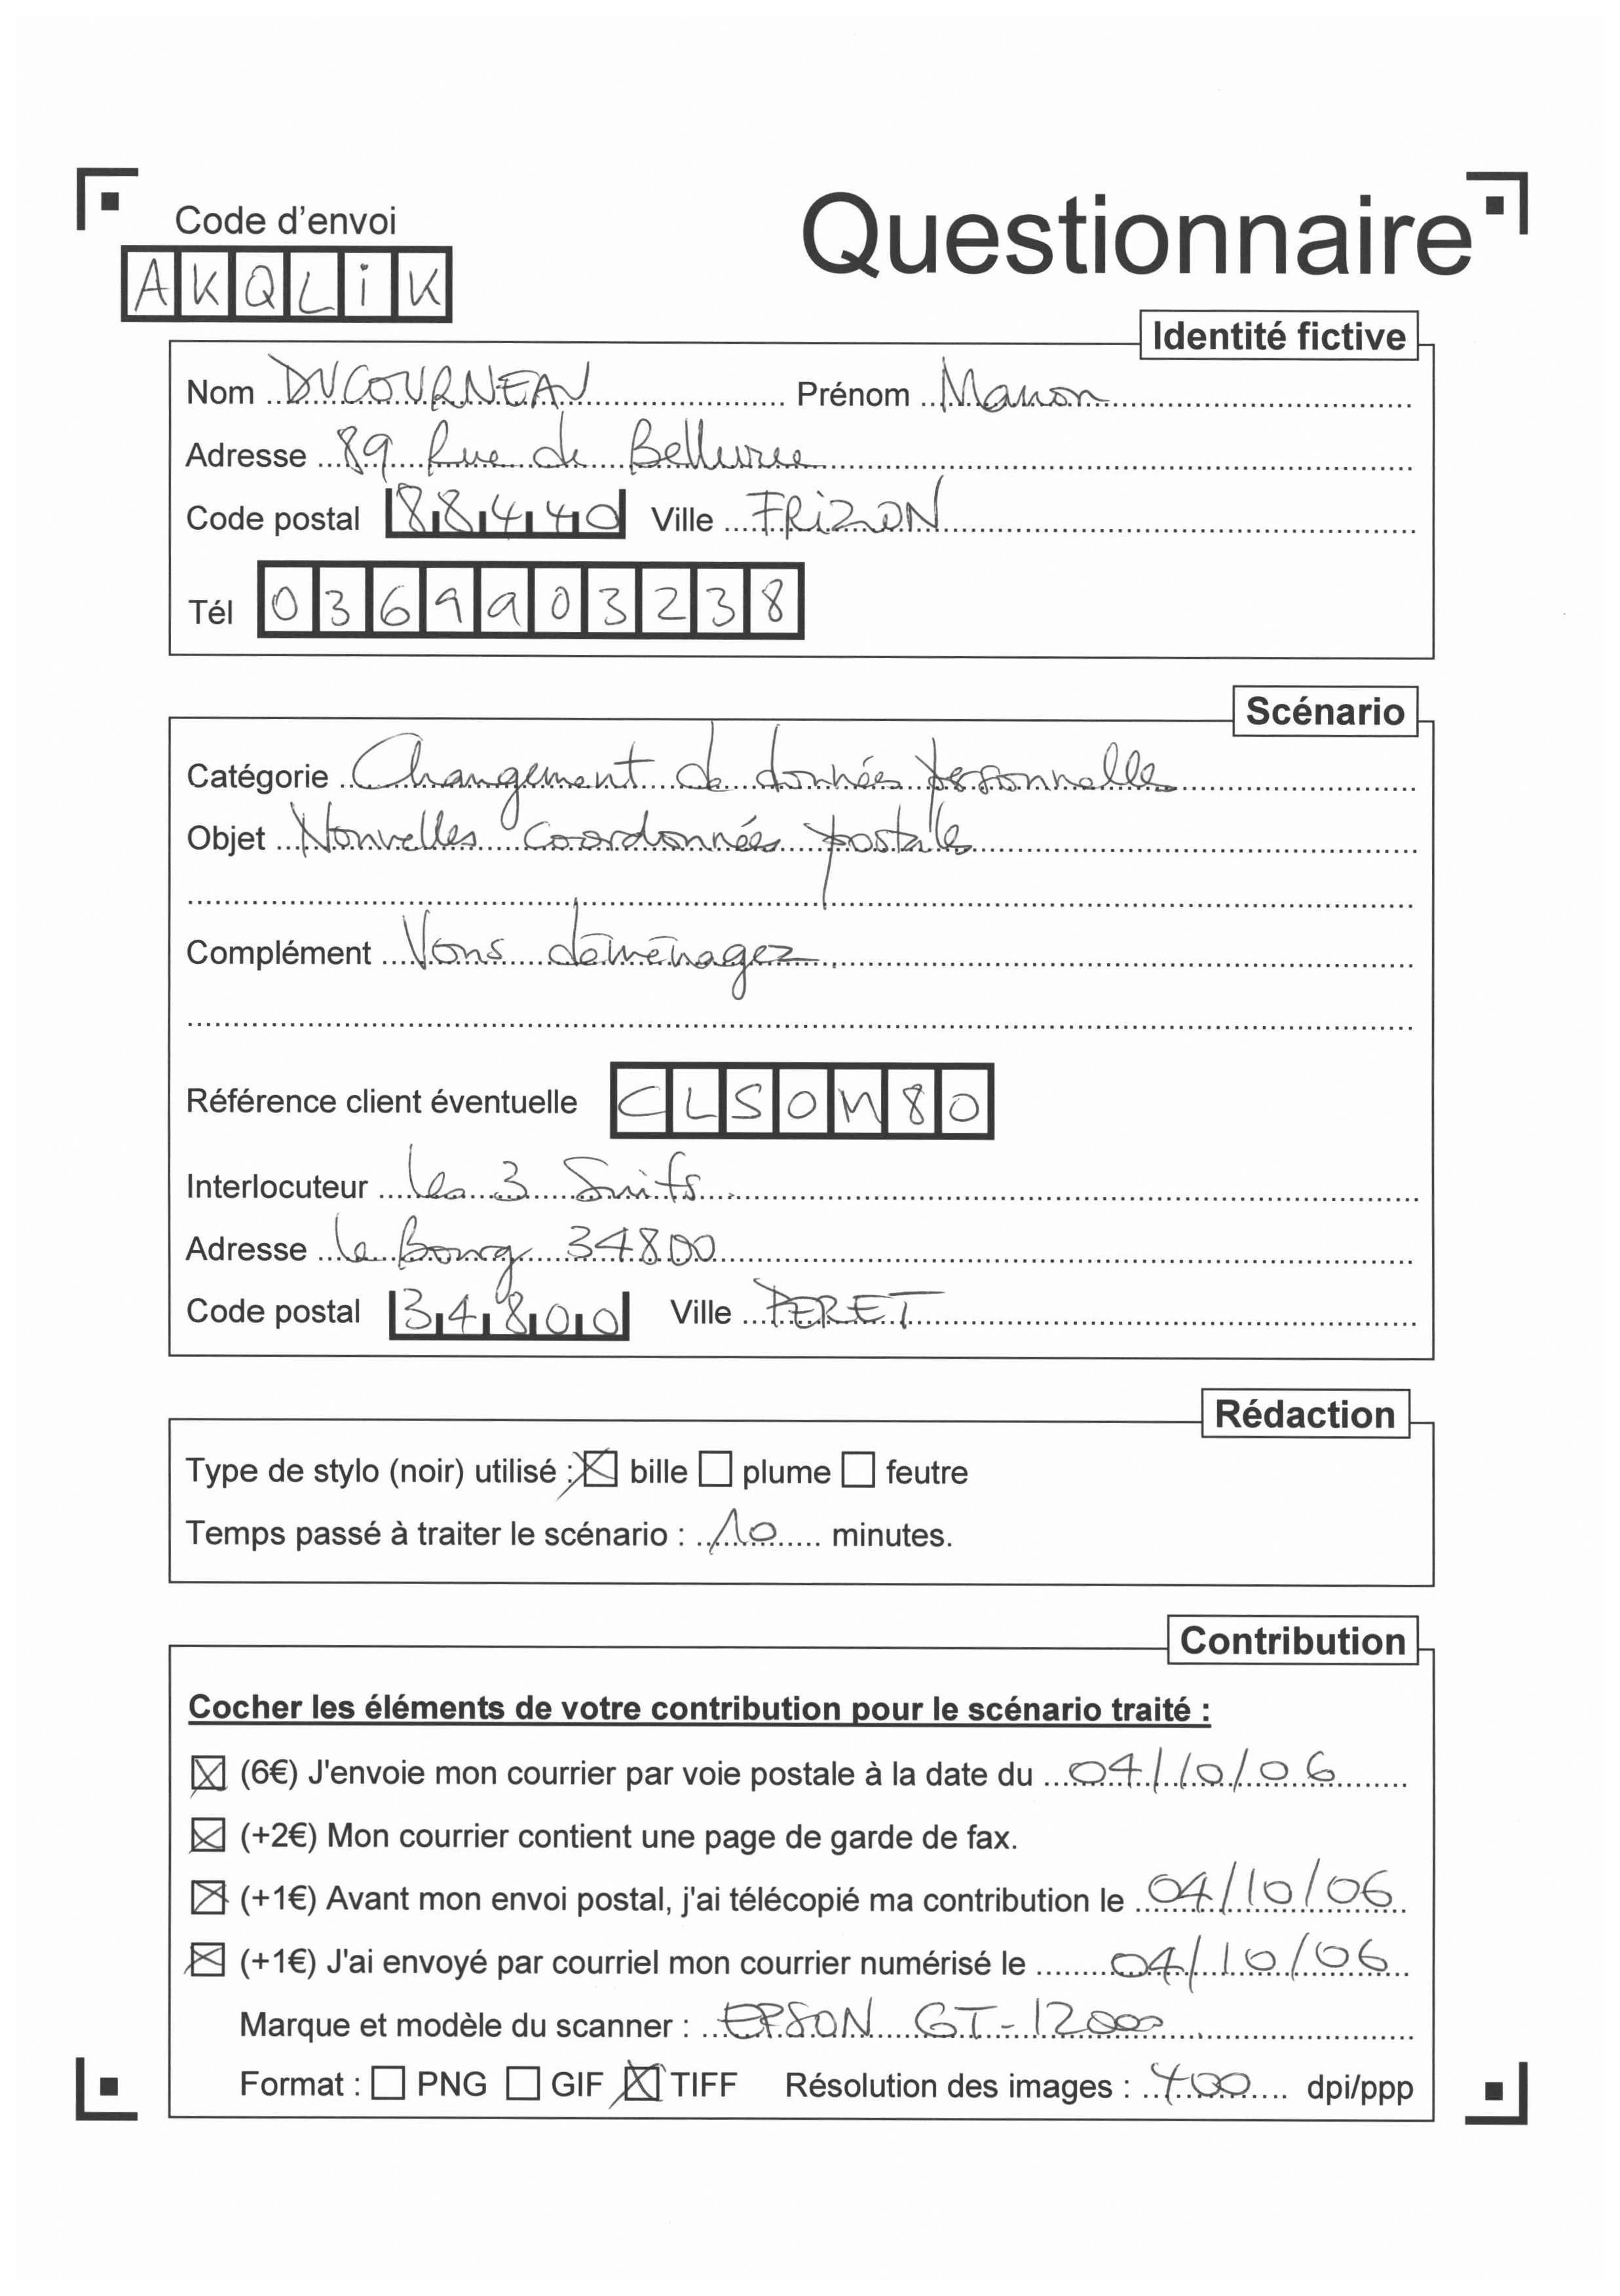 Code d'envoi
Questionnaire
AKQLiK
Identité fictive
Nom DUCOURNEAU Prénom Manon
Adresse 89 Rue de Bellevue
Code postal 88440 Ville FRiZON
Tél 0369903238
Scénario
Catégorie Changement de données personnelles
Objet Nouvelles coordonnées postales
Complément Vous déménagez
Référence client éventuelle CLSOM80
Interlocuteur Les 3 Suits
Adresse Le Bourg 34800
Code postal 34800 Ville PERET
Rédaction
Type de stylo (noir) utilisé : ☒ bille ☐ plume ☐ feutre
Temps passé à traiter le scénario : 10 minutes.
Contribution
Cocher les éléments de votre contribution pour le scénario traité :
☒ (6€) J'envoie mon courrier par voie postale à la date du 04/10/06
☒ (+2€) Mon courrier contient une page de garde de fax.
☒ (+1€) Avant mon envoi postal, j'ai télécopié ma contribution le 04/10/06
☒ (+1€) J'ai envoyé par courriel mon courrier numérisé le 04/10/06
Marque et modèle du scanner : EPSON GT-12000
Format : ☐ PNG ☐ GIF ☒ TIFF Résolution des images : 400 dpi/ppp